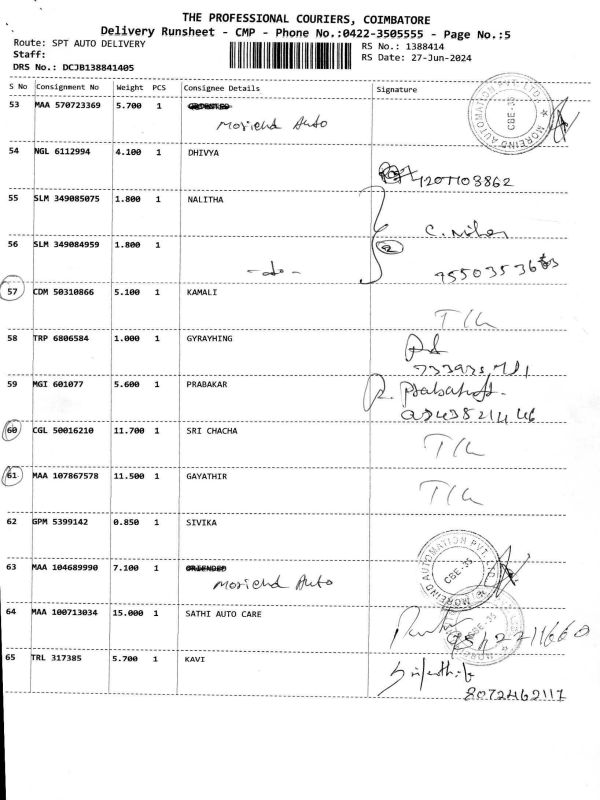 THE PROFESSIONAL COURIERS, COIMBATORE
Delivery Runsheet - CMP - Phone No.:0422-3505555 - Page No.:5
Route: SPT AUTO DELIVERY
RS No.: 1388414
Staff:
RS Date: 27-Jun-2024
DRS No.: DCJB138841405
S No Consignment No Weight PCS Consignee Details Signature
53 MAA 570723369 5.700 1
Auto
MOREIND AUTOMATION PVT. LTD. CBE-35
54 NGL 6112994 4.100 1 DHIVYA
55 SLM 349085075 1.800 1 NALITHA
56 SLM 349084959 1.800 1
2
-do-
57 CDM 50310866 5.100 1 KAMALI
58 TRP 6806584 1.000 1 GYRAYHING
59 MGI 601077 5.600 1 PRABAKAR
60 CGL 50016210 11.700 1 SRI CHACHA
61 MAA 107867578 11.500 1 GAYATHIR
62 GPM 5399142 0.850 1 SIVIKA
MOREIND AUTOMATION PVT. LTD. CBE-35
63 MAA 104689990 7.100 1
Auto
64 MAA 100713034 15.000 1 SATHI AUTO CARE
65 TRL 317385 5.700 1 KAVI
8072462117